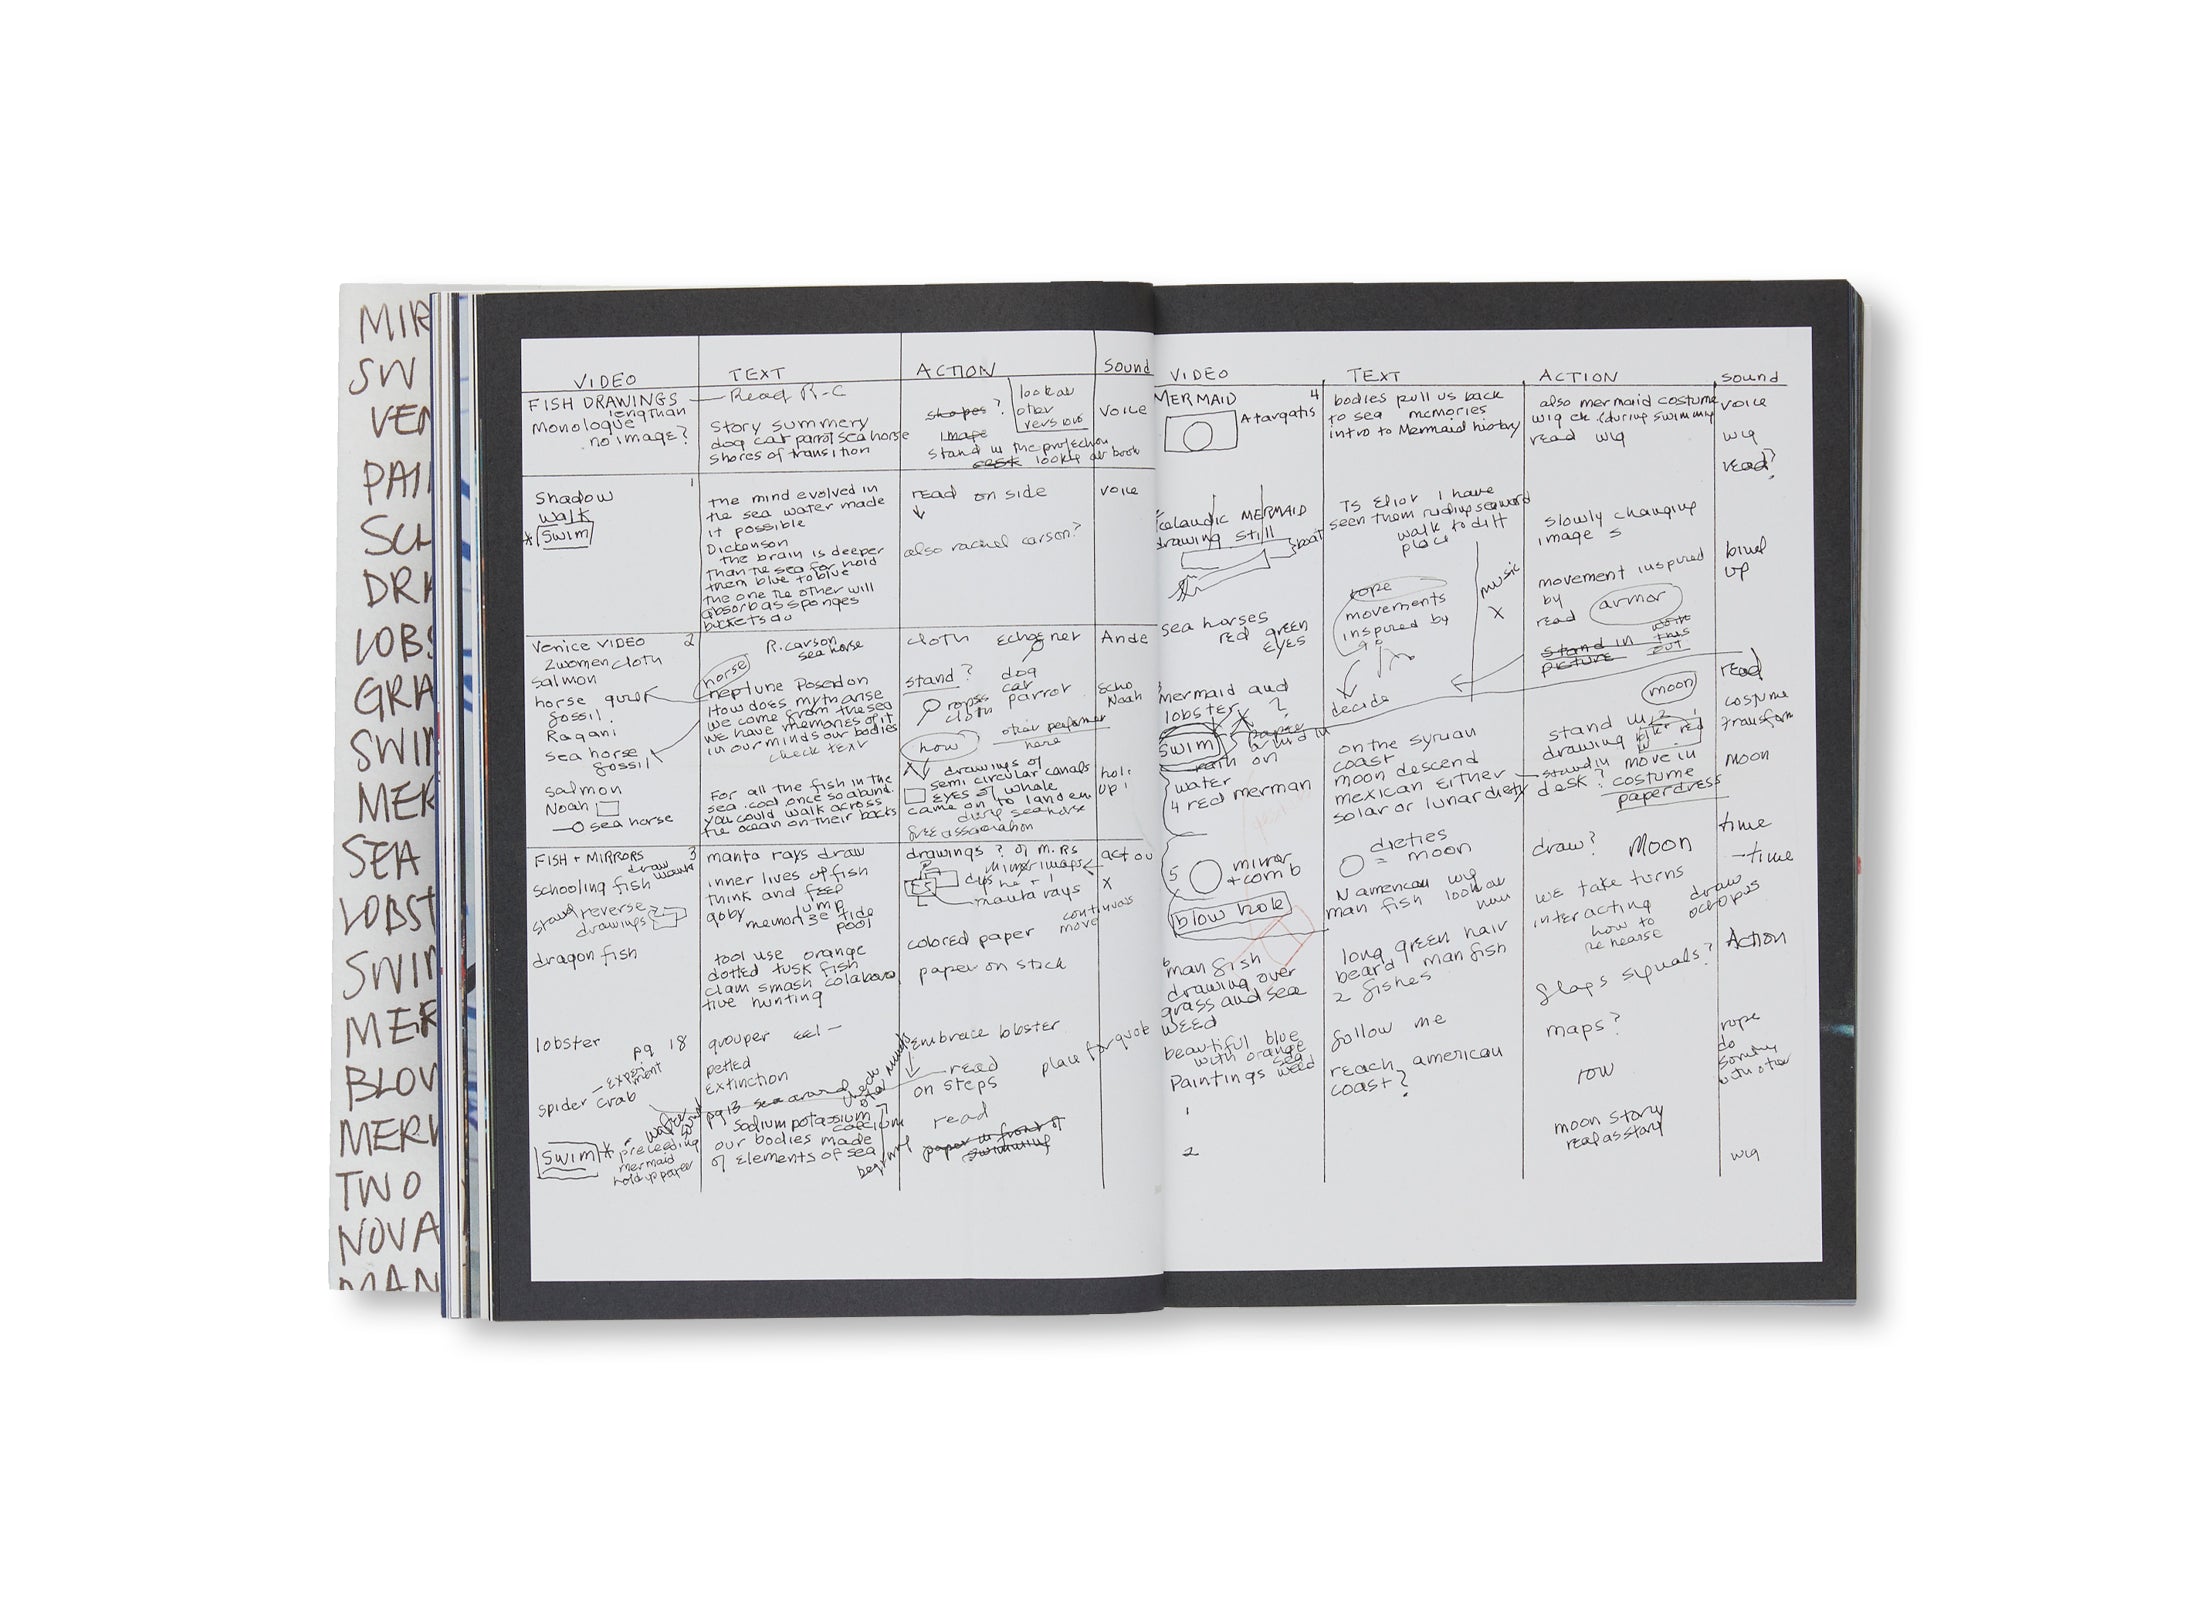 MIR
SW
VEN
PAI
SCH
DRA
LOBS
GRA
SWIM
MER
SEA
LOBST
SWIM
MER
BLOW
MERM
TWO
NOVA
MAN
VIDEO
FISH DRAWINGS
Monologue
no image?
1
Shadow
Walk
* Swim
Venice VIDEO 2
2 women cloth
salmon
horse
fossil
Ragani
sea horse
fossil
salmon
Noah
sea horse
FISH + MIRRORS 3
draw
schooling fish
reverse
drawings
dragon fish
lobster
pg 18
experi
ment
spider crab
Swim *
preceeding
mermaid
hold up paper
TEXT
Read R-C
Story summery
dog cat parrot sea horse
shores of transition
the mind evolved in
the sea water made
it possible
Dickenson
the brain is deeper
than the sea for hold
them blue to blue
the one the other will
absorb as sponges
buckets do
R. carson
sea horse
horse
neptune Poseidon
How does myth arise
we come from the sea
we have memories of it
in our minds our bodies
check text
For all the fish in the
sea. cod once so abund.
you could walk across
the ocean on their backs
manta rays draw
inner lives of fish
think and feel
goby jump
memorize tide
pool
tool use orange
dotted tusk fish
clam smash colabora
tive hunting
grouper eel
petted
extinction
pg 13 sea around
Sodium potassium
calcium
our bodies made
of elements of sea
ACTION
shapes?
look at
other
image
stand in the projection
desk looking at book
read on side
also rachel carson?
cloth
stand?
dog
cat
parrot
ropes
cloth
how
other performer
here
drawings of
semi circular canals
eyes of whale
came on to land en
sea horse
free association
drawings? of M.Rs
mirror images
manta rays
continuous
move
colored paper
paper on stick
Embrace lobster
read
on steps
place for quote
read
paper in front of
swimming
Sound
voice
voice
Ande
Echo
Noah
hold
up
act out
X
VIDEO
MERMAID 4
Atargatis
Icelandic MERMAID
drawing still
boat
sea horses
red green
eyes
mermaid and
lobster
?
swim
water
4 red merman
5 mirror
+ comb
blow hole
man fish
drawing over
grass and sea
weed
beautiful blue
with orange
sea
Paintings weed
1
2
TEXT
bodies pull us back
to sea memories
intro to Mermaid history
TS Eliot I have
seen them riding seaward
walk to diff
place
rope
movements
inspired by
music
X
decide
on the syrian
coast
moon descend
mexican either
solar or lunar diety
dieties
= moon
N american wig
man fish look at
long green hair
beard man fish
2 fishes
follow me
reach american
coast?
ACTION
also mermaid costume
wig etc (during swimming
read wig
slowly changing
image s
movement inspired
by
read armor
stand in
picture
moon
stand in
drawing
stand in move in
desk? costume
paper dress
draw? Moon
we take turns
interacting
draw
octopus
how to
rehearse
flaps signals?
maps?
row
moon story
read as story
sound
voice
wig
read?
up
read
costume
transform
moon
time
time
Action
rope
do
with other
wig